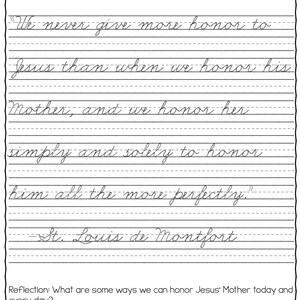 "We never give more honor to
Jesus than when we honor his
Mother, and we honor her
simply and solely to honor
him all the more perfectly."
-St. Louis de Montfort
Reflection: What are some ways we can honor Jesus' Mother today and
every day?